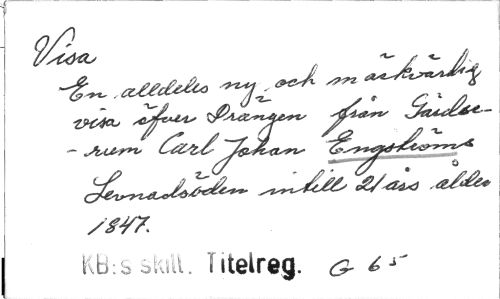 Visa
En alldeles ny och märkvärdig
visa öfver Drängen från Gärdse-
-rum Carl Johan Engströms
Levnadsöden intill 21 års ålder
1847.
KB:s skill. Titelreg. G 65